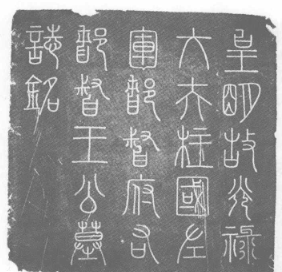 皇明故光祿
大夫柱國左
軍都督府右
都督王公墓
誌銘